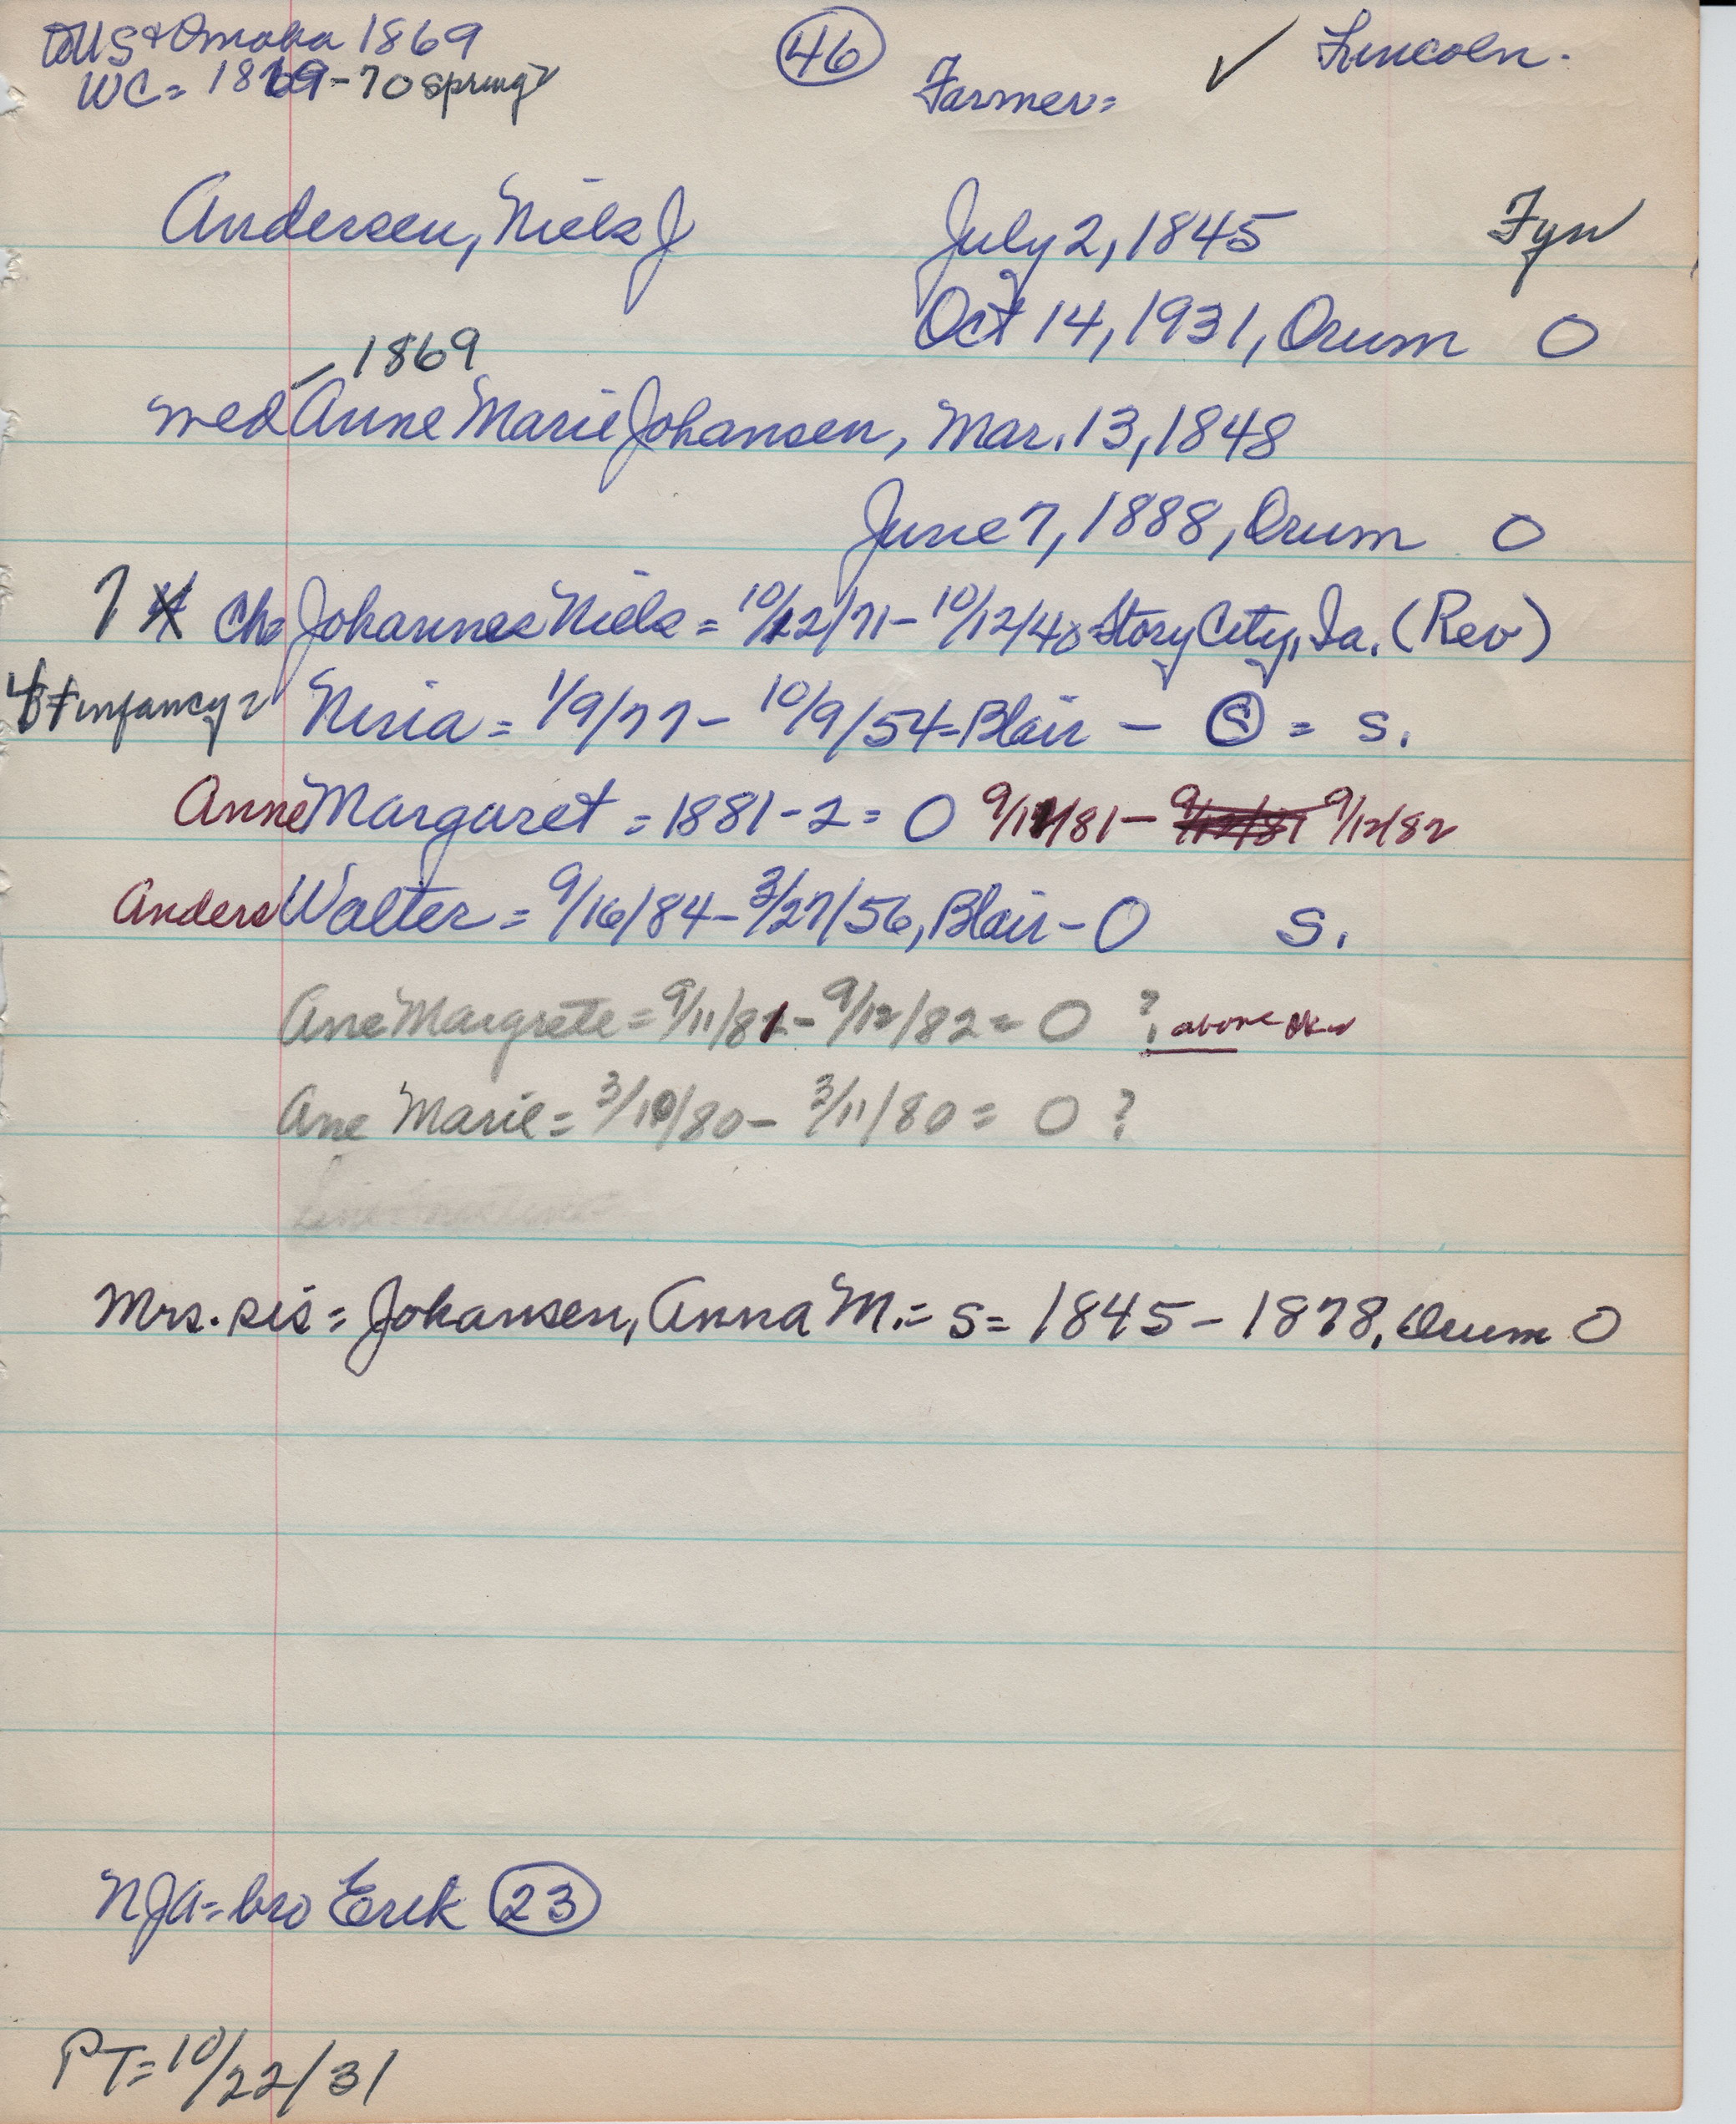 to US & Omaha 1869
WC = 1869-70 spring
46
Farmer =
✓ Lincoln.
Andersen, Niels J July 2, 1845 Fyn
Oct 14, 1931, Orum O
- 1869
med Anne Marie Johansen, Mar. 13, 1848
June 7, 1888, Orum O
7 Ch = Johannes Niels = 10/22/71 - 10/12/48 Story City, Ia. (Rev)
4 + infancy Niria = 1/9/77 - 10/9/54 = Blair - Ⓢ = S.
Anne Margaret = 1881-2 = O 9/11/81 - 9/12/81 9/12/82
Anders Walter = 9/16/84 - 3/27/56, Blair - O S.
Ane Margrete = 9/11/81 - 9/12/82 = O ? above ok
Ane Marie = 3/10/80 - 3/11/80 = O ?
Mrs. sis = Johansen, Anna M. = S = 1845 - 1878, Orum O
NJA = bro Erik 23
PT = 10/22/31